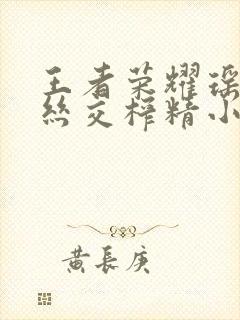 王者荣耀瑶
丝交榨精小
黄长庚